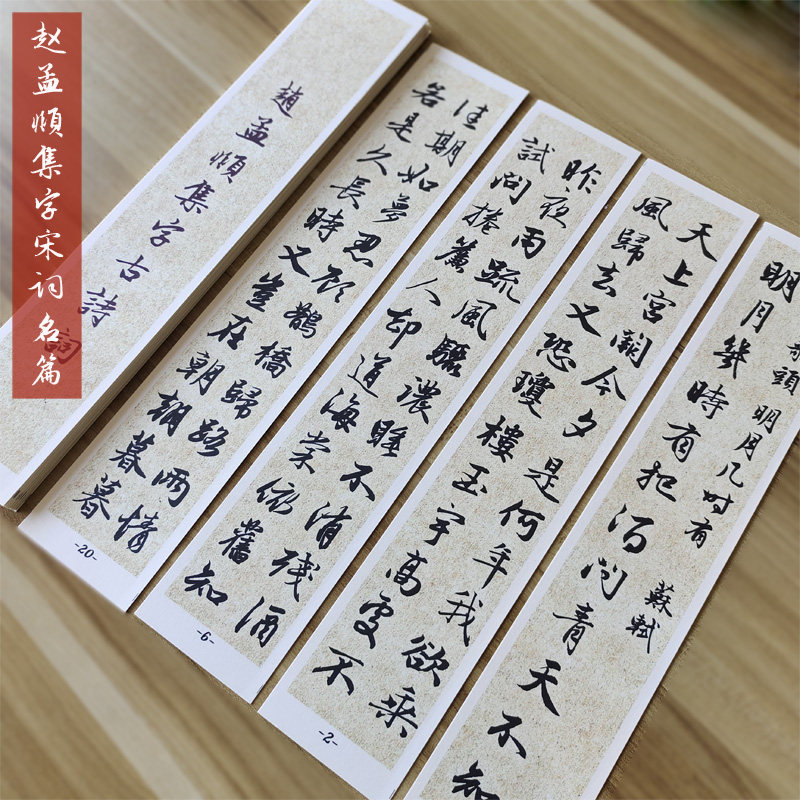 赵孟頫集字宋词名篇
趙孟頫集字古詩詞
頭 明月几时有 蘇軾
明月幾時有把酒問青天不知
天上宮闕今夕是何年我欲乘
風歸去又恐瓊樓玉宇高處不
-2-
昨夜雨疏風驟濃睡不消殘酒
試問捲簾人却道海棠依舊知
-6-
佳期如夢忍顧鵲橋歸路兩情
若是久長時又豈在朝朝暮暮
-20-